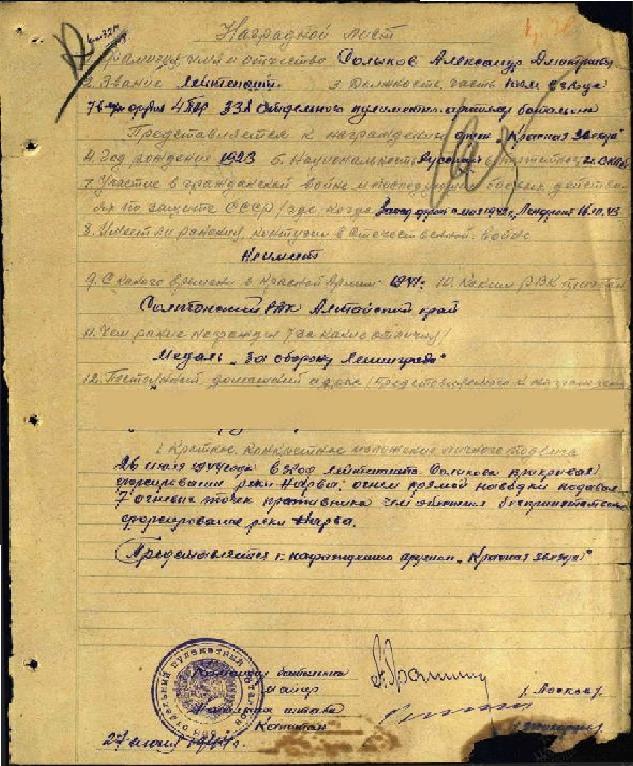 Наградной лист
1. Фамилия, имя и отчество Долыков Александр Дмитриев
2. Звание Лейтенант 3. Должность, часть ком. взвода
76 мм орудий 4 ПАР 338 отдельного пулеметно-артиллер батальона
Представляется к награждению орден "Красная Звезда"
4. Год рождения 1923 5. Национальность Русский 6. Партийность
7. Участие в гражданской войне и последующих боевых действи-
ях по защите СССР /где, когда/ Ленфронт 16.10.43
8. Имеет ли ранения, контузии в Отечественной войне
Не имеет
9. С какого времени в Красной Армии 1941. 10. Каким РВК призван
РВК Алтайский край
11. Чем ранее награжден /за какие отличия/
Медаль "За оборону Ленинграда"
12. Постоянный домашний адрес /представляемого к награждению
1. Краткое, конкретное изложение личного подвига
26 июля 1944 года взвод лейтенанта Долыкова прикрывая
форсирование реки Нарва, огнем прямой наводки подавил
7 огневых точек противника чем обеспечил беспрепятственное
форсирование реки Нарва.
Представляется к награждению орденом "Красная звезда"
Командир батальона
майор
Начальник штаба
Капитан
27 июля 1944 г.
ОТДЕЛЬНЫЙ ПУЛЕМЕТНЫЙ